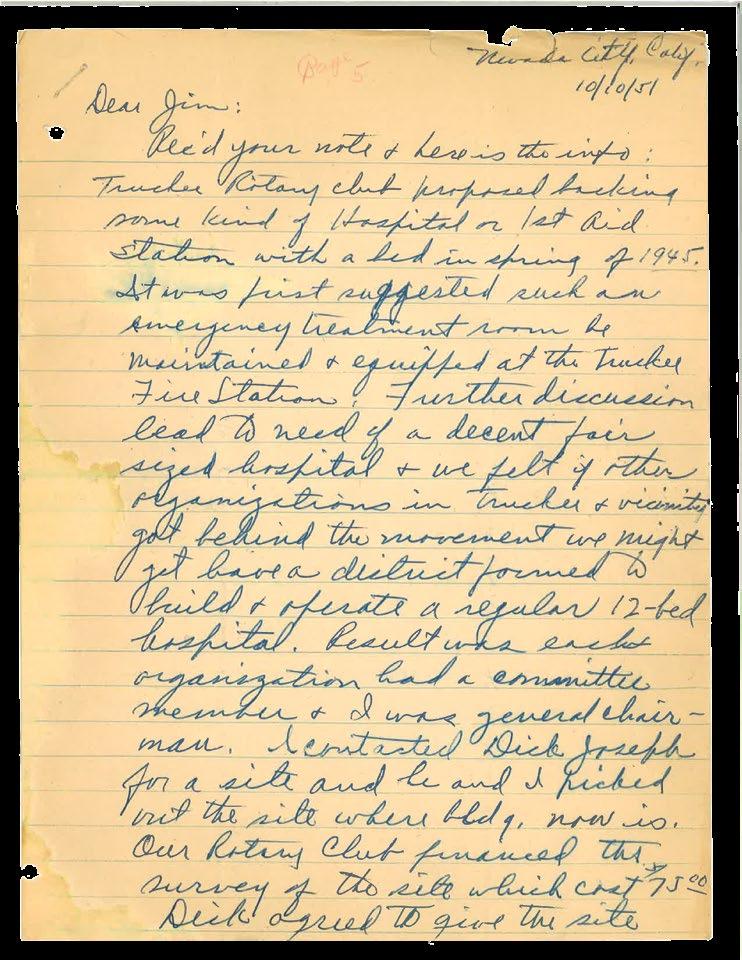 Page
5
Nevada City, Calif.
10/10/51
Dear Jim:
Rec'd your note & here is the info:
Truckee Rotary Club proposed backing
some kind of Hospital or 1st Aid
Station with a bed in spring of 1945.
It was first suggested such an
emergency treatment room be
maintained & equipped at the Truckee
Fire Station. Further discussion
lead to need of a decent fair
sized hospital & we felt if other
organizations in Truckee & vicinity
got behind the movement we might
get have a district formed to
build & operate a regular 12-bed
hospital. Result was each
organization had a committee
member & I was general chair-
man. I contacted Dick Joseph
for a site and he and I picked
out the site where bldg. now is.
Our Rotary Club financed the
survey of the site which cost $75.00
Dick agreed to give the site